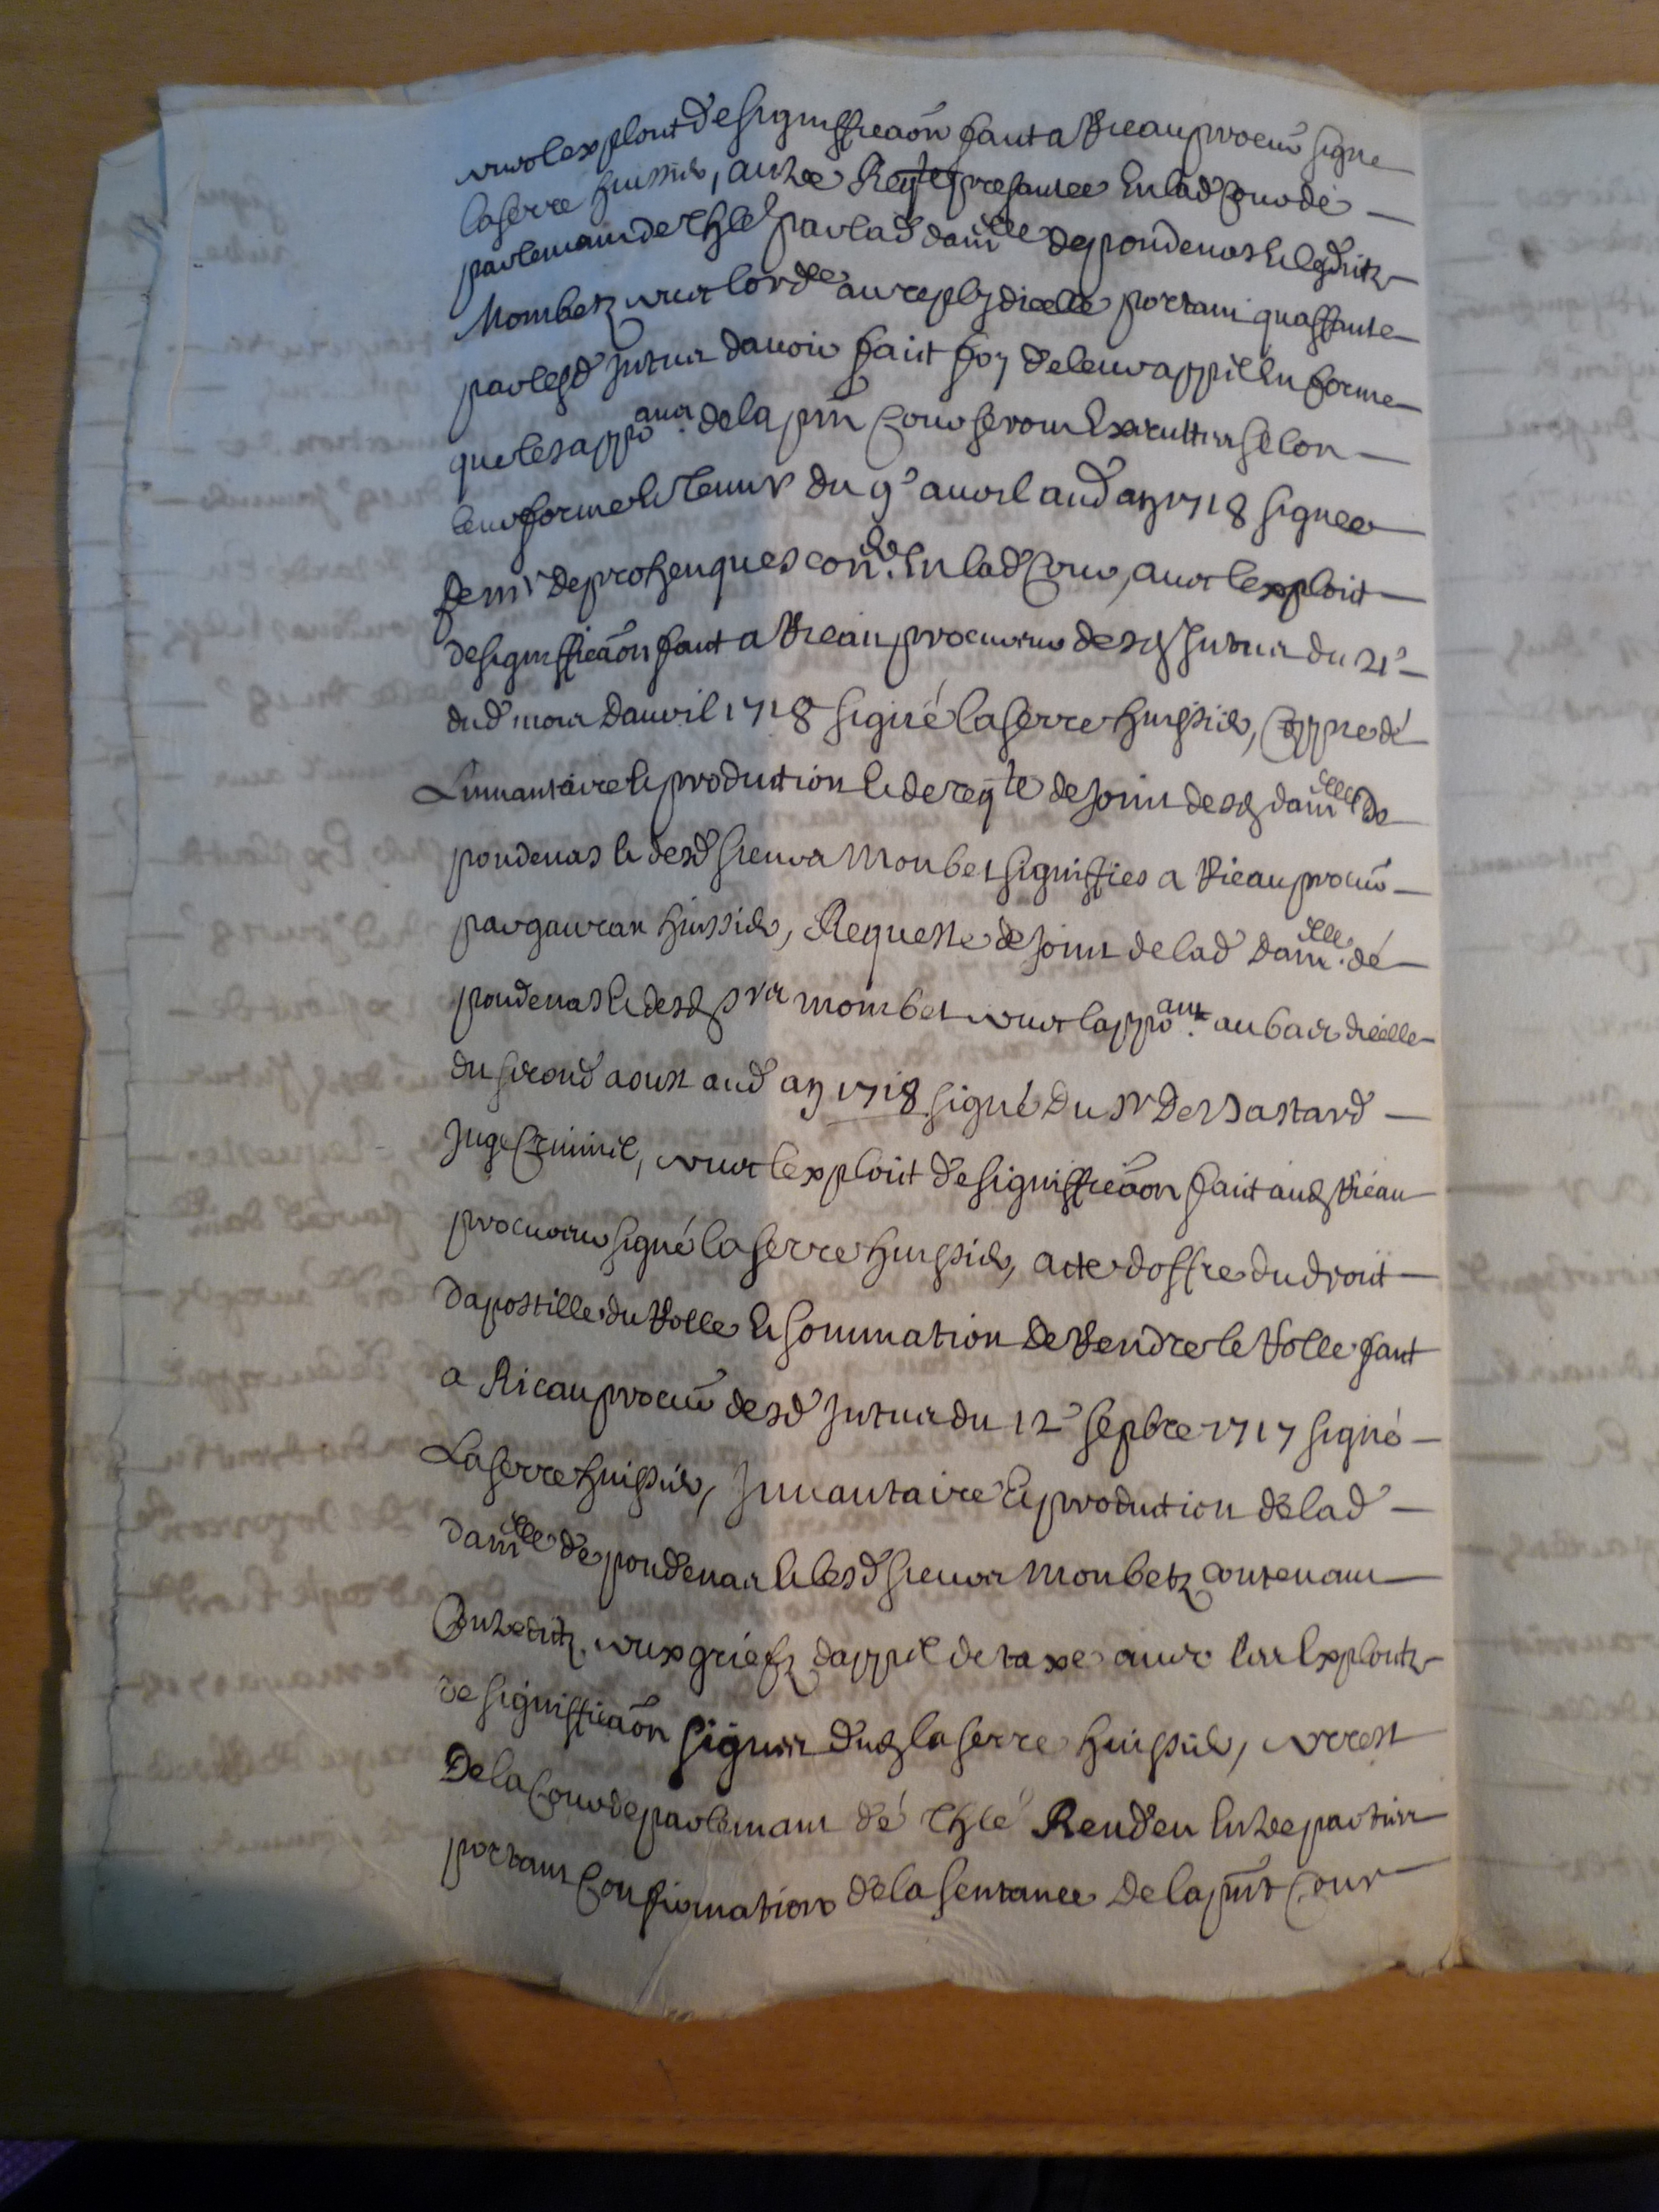 avec lexploit de signifficaõn fait a Ricau procur̃ signe
laserre huissier, autre Reqte presantee En lad Cour de
parlemant de Thle par lad damlle de pondenas Et lesdits
Mombetz avec lordce au reply dicelle portant qua faute
par lesd Jntur davoir fait foy de leur appel En forme
que les appoans. de la pñt Cour seront Executtes selon
leur forme Et teneur du 9e avril aud an 1718 signee
de mr de prohenques conler. En lad Cour, avec lexploit
de signifficaõn fait a Ricau procureur desd Jntur du 21e
dud mois davril 1718 signé laserre huissier, Coppie de
Linvantaire Et production Et de reqte de joint desd damlle De
pondenas Et desd sieurs Monbet signiffies a Ricau procur̃
par gauran huissier, Requeste de joint de lad damlle. dé
pondenas Et desd srs mombet avec lappoant. au bas dicelle
du segond aoust aud an 1718 signé du Sr De Bastard
Juge Criminel, avec lexploit de signifficaõn fait aud Ricau
procureur signé laserre huissier, acte doffre du droit
dapostille du Rolle Et sommation de Rendre le Rolle fait
a Ricau procur̃ desd Jntur du 12e sepbre 1717 signé
Laserre huissier, Jnvantaire Et prodution de lad
damlle de pondenas Et lesd sieurs Monbetz contenant
Contredits aux griefs dappel de taxe avec les Exploits
de signifficaõn signes dud laserre huissier, arrest
De la Cour de parlemant dé Thle Renden Entre parties
portant Confirmation de la sentance de la pñt Cour